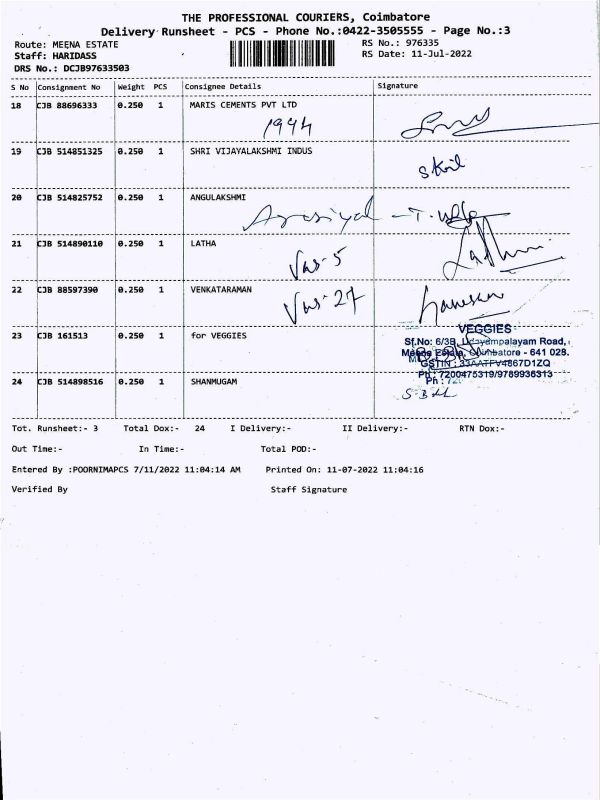 THE PROFESSIONAL COURIERS, Coimbatore
Delivery Runsheet - PCS - Phone No.:0422-3505555 - Page No.:3
Route: MEENA ESTATE RS No.: 976335
Staff: HARIDASS RS Date: 11-Jul-2022
DRS No.: DCJB97633503
S No Consignment No Weight PCS Consignee Details Signature
18 CJB 88696333 0.250 1 MARIS CEMENTS PVT LTD
1994
19 CJB 514851325 0.250 1 SHRI VIJAYALAKSHMI INDUS
20 CJB 514825752 0.250 1 ANGULAKSHMI
21 CJB 514890110 0.250 1 LATHA
Vas-5
22 CJB 88597390 0.250 1 VENKATARAMAN
Vas-27
23 CJB 161513 0.250 1 for VEGGIES
VEGGIES
Sf.No: 6/3B, Udayampalayam Road,
Meena Estate, Coimbatore - 641 028.
GSTIN : 33AATFV4867D1ZQ
Ph : 7200475319/9789936313
24 CJB 514898516 0.250 1 SHANMUGAM
Tot. Runsheet:- 3 Total Dox:- 24 I Delivery:- II Delivery:- RTN Dox:-
Out Time:- In Time:- Total POD:-
Entered By :POORNIMAPCS 7/11/2022 11:04:14 AM Printed On: 11-07-2022 11:04:16
Verified By Staff Signature